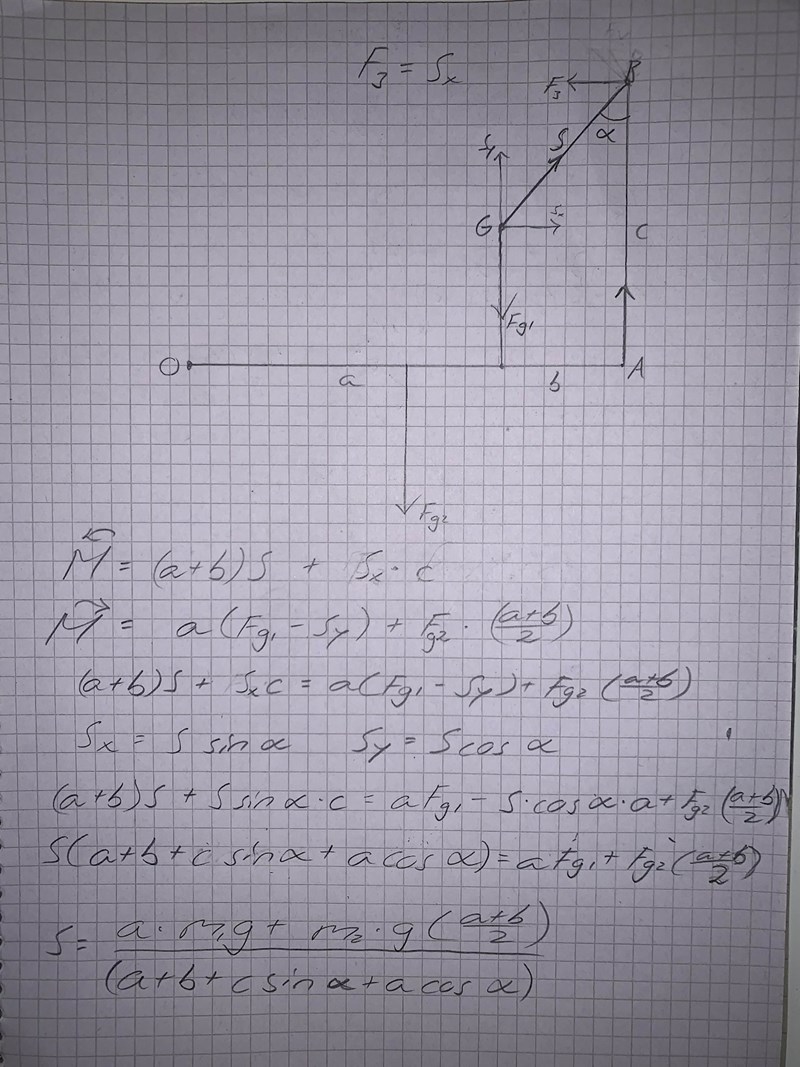 F₃ = Sₓ
B
F₃
α
S
Sy
G
C
Fg₁
O
a
b
A
Fg₂
M = (a+b)S + Sₓ · c
M = a(Fg₁ - Sy) + Fg₂ · (a+b)/2
(a+b)S + Sₓc = a(Fg₁ - Sy) + Fg₂ (a+b)/2
Sₓ = S sin α Sy = S cos α
(a+b)S + S sin α · c = aFg₁ - S · cos α · a + Fg₂ (a+b)/2
S(a+b+c sin α + a cos α) = aFg₁ + Fg₂ (a+b)/2
S = a · m₁g + m₂ · g (a+b)/2
(a+b+c sin α + a cos α)